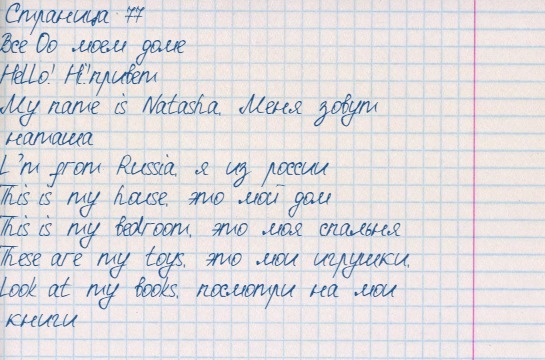 Страница 77
Все Оо моем доме
Hello! Hi!привет
My name is Natasha, Меня зовут
наташа
I'm from Russia, я из россии
This is my house, это мой дом
This is my bedroom, это моя спальня
These are my toys, это мои игрушки,
Look at my books, посмотри на мои
книги